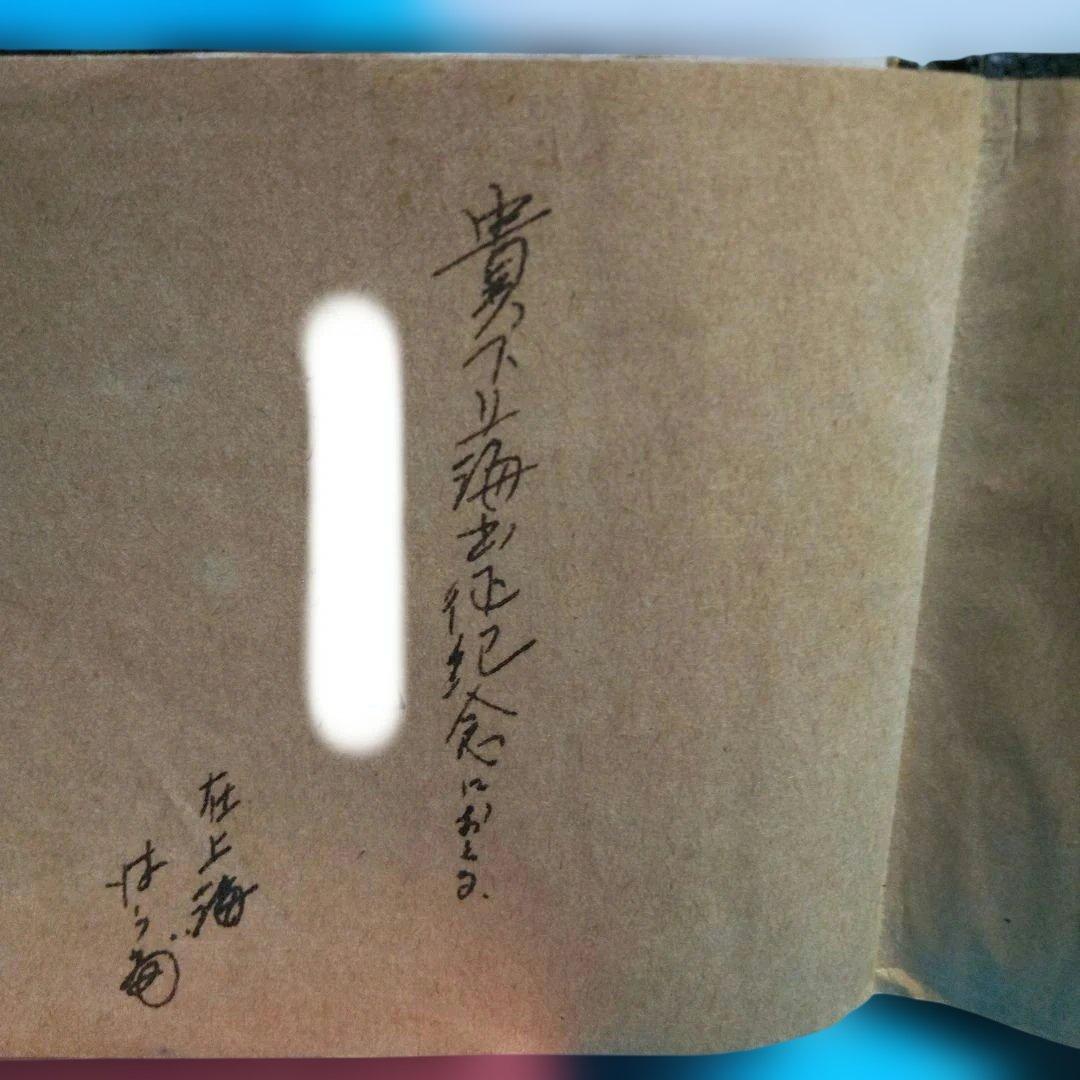 貴下上海出征紀念におくる.
在上海